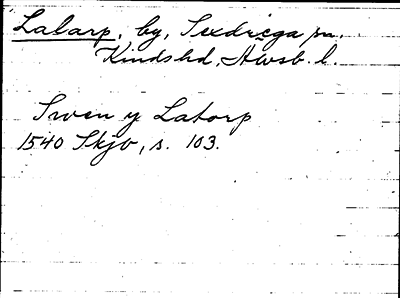 Lalarp, by, Sexdrega sn.
Kinds hd, Älvsb. l.
Swen y Latorp
1540 Skjo, s. 103.